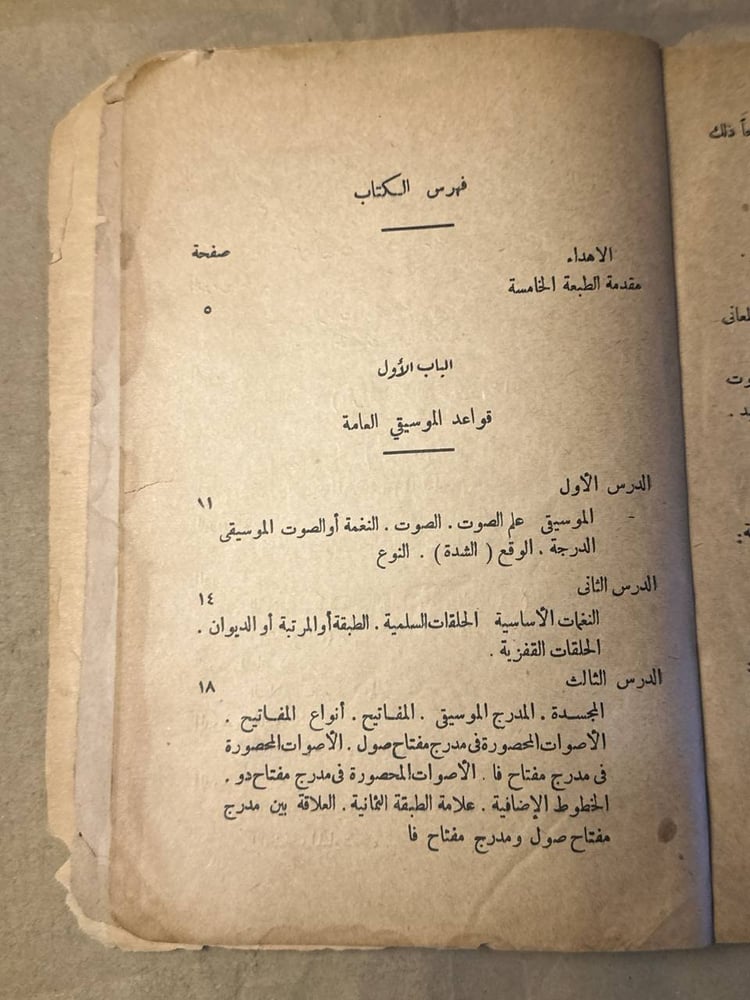 فهرس الكتاب
الاهداء صفحة
مقدمة الطبعة الخامسة
٥
الباب الأول
قواعد الموسيقي العامة
الدرس الأول ١١
- الموسيقى علم الصوت . الصوت . النغمة أو الصوت الموسيقى
الدرجة . الوقع ( الشدة ) . النوع
الدرس الثانى ١٤
النغمات الأساسية الحلقات السلمية . الطبقة أو المرتبة أو الديوان .
الحلقات القفزية .
الدرس الثالث ١٨
المجسدة . المدرج الموسيقى . المفاتيح . أنواع المفاتيح .
الأصوات المحصورة فى مدرج مفتاح صول . الأصوات المحصورة
فى مدرج مفتاح فا . الأصوات المحصورة فى مدرج مفتاح دو .
الخطوط الإضافية . علامة الطبقة الثمانية . العلاقة بين مدرج
مفتاح صول ومدرج مفتاح فا
ذلك